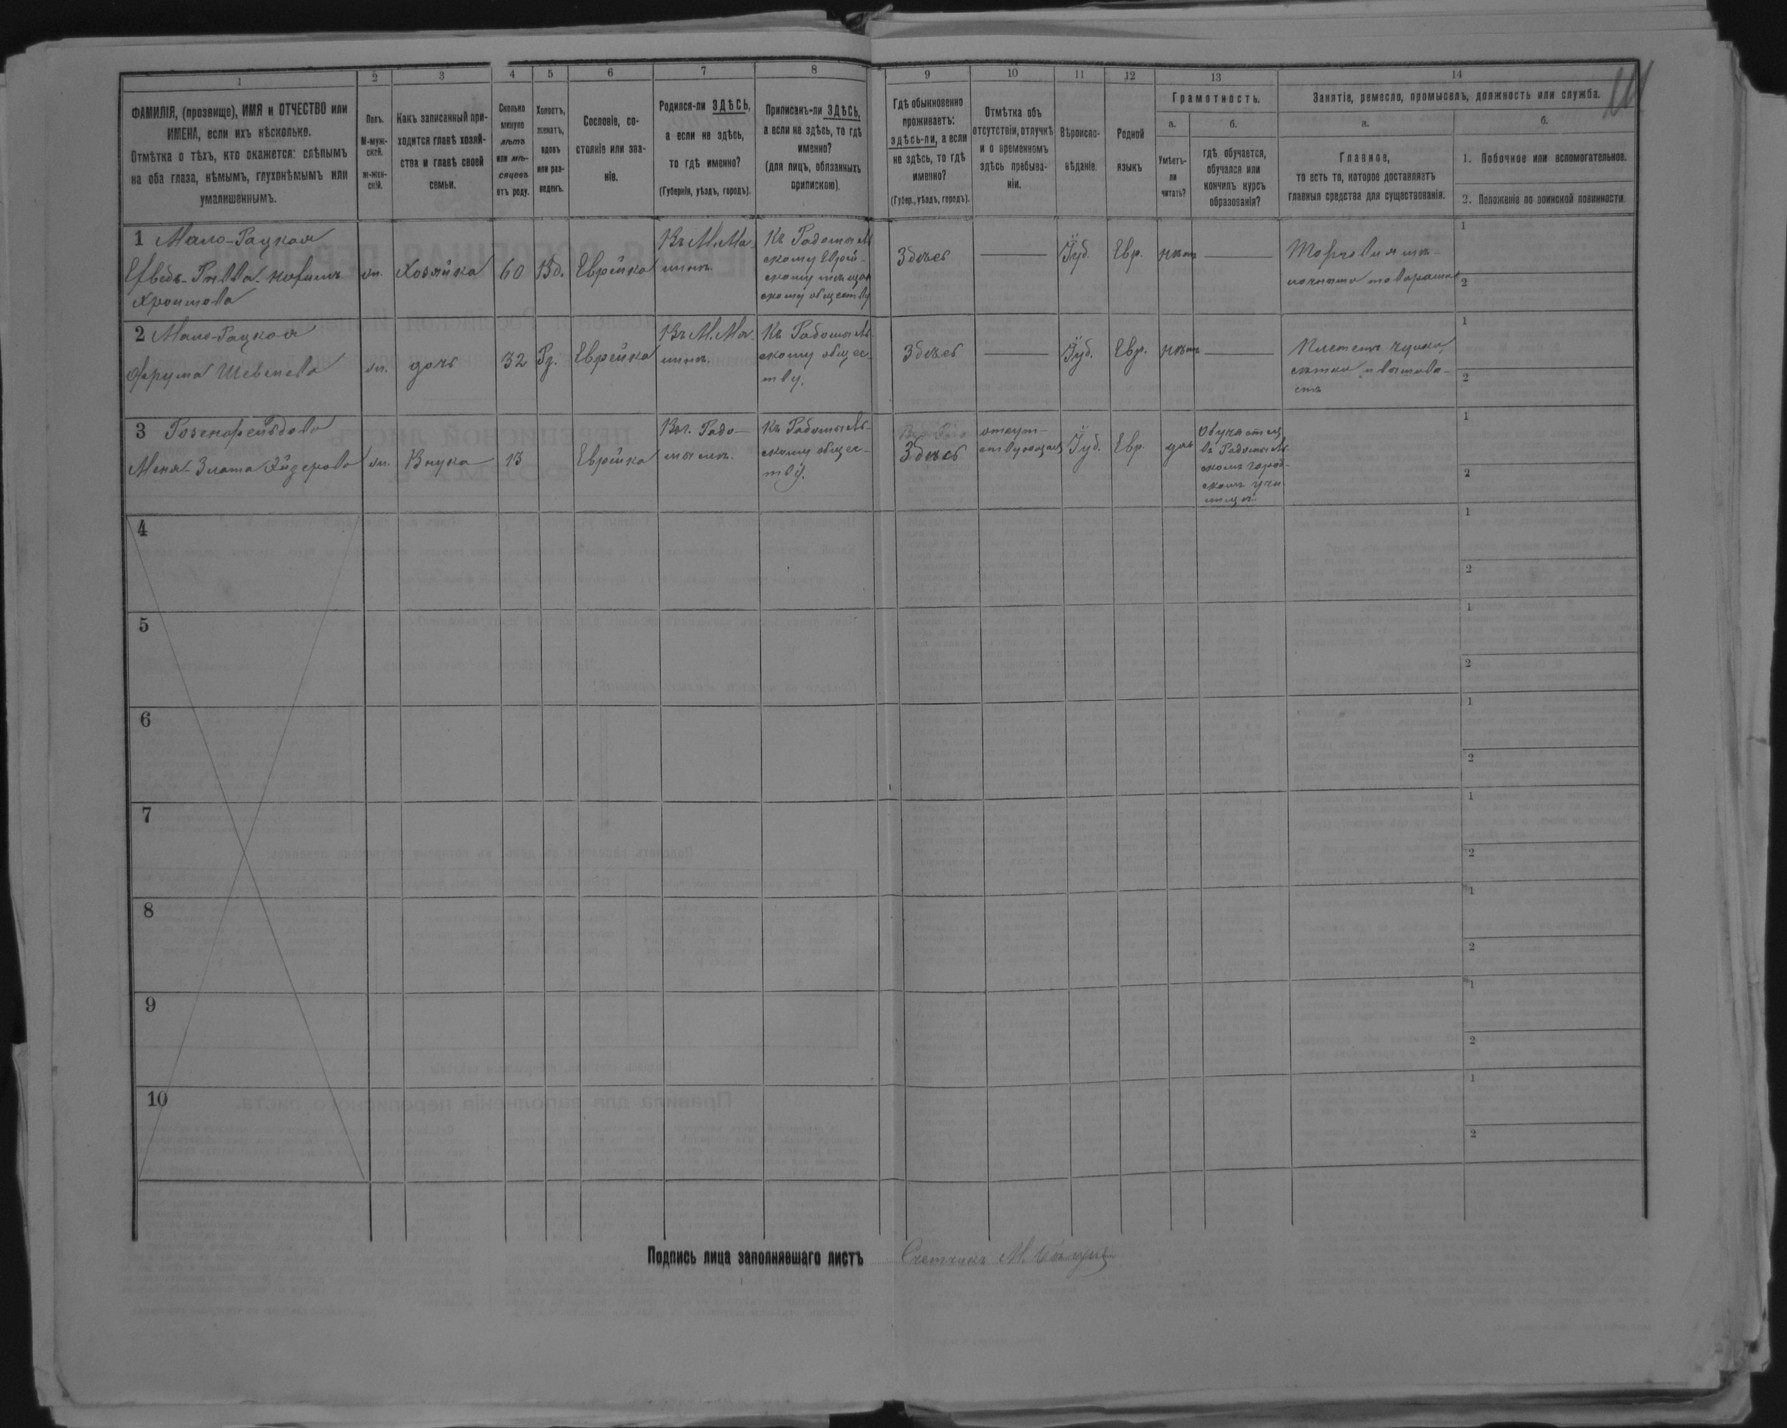 1 2 3 4 5 6 7 8 9 10 11 12 13 14
ФАМИЛІЯ, (прозвище), ИМЯ и ОТЧЕСТВО или
ИМЕНА, если ихъ нѣсколько.
Отмѣтка о тѣхъ, кто окажется: слѣпымъ
на оба глаза, нѣмымъ, глухонѣмымъ или
умалишеннымъ.
Полъ.
М-муж-
ской.
ж-жен-
скій.
Какъ записанный при-
ходится главѣ хозяй-
ства и главѣ своей
семьи.
Сколько
минуло
лѣтъ
или мѣ-
сяцевъ
отъ роду.
Холостъ,
женатъ,
вдовъ
или раз-
веденъ.
Сословіе, со-
стояніе или зва-
ніе.
Родился-ли ЗДѢСЬ,
а если не здѣсь,
то гдѣ именно?
(Губернія, уѣздъ, городъ).
Приписанъ-ли ЗДѢСЬ,
а если не здѣсь, то гдѣ
именно?
(для лицъ, обязанныхъ
припискою).
Гдѣ обыкновенно
проживаетъ:
здѣсь-ли, а если
не здѣсь, то гдѣ
именно?
(Губер., уѣздъ, городъ).
Отмѣтка объ
отсутствіи, отлучкѣ
и о временномъ
здѣсь пребыва-
ніи.
Вѣроиспо-
вѣданіе.
Родной
языкъ
Грамотность.
а.
Умѣетъ-
ли
читать?
б.
гдѣ обучается,
обучался или
кончилъ курсъ
образованія?
Занятіе, ремесло, промыселъ, должность или служба.
а.
Главное,
то есть то, которое доставляетъ
главныя средства для существованія.
б.
1. Побочное или вспомогательное.
2. Положеніе по воинской повинности.
1 Мало-Рацкая
Хозяйка
60
Вд.
Еврейка
Къ Радомысль-
скому Еврей-
скому мѣщан-
скому обществу
Здѣсь
Іуд.
Евр.
нѣтъ
1
2
2 Мало-Рацкая
Фрума
дочь
32
Еврейка
Къ Радомысль-
скому общес-
тву.
Здѣсь
Іуд.
Евр.
нѣтъ
1
2
3
Злата
Внука
13
Еврейка
Въ г. Радо-
мыслѣ.
Къ Радомысль-
скому общес-
тву.
Здѣсь
отсут-
ствующая
Іуд.
Евр.
да
Обучается
въ Радомысль-
скомъ город-
скомъ учи-
лищѣ
1
2
4
1
2
5
1
2
6
1
2
7
1
2
8
1
2
9
1
2
10
1
2
Подпись лица заполнявшаго листъ Счетчикъ М.